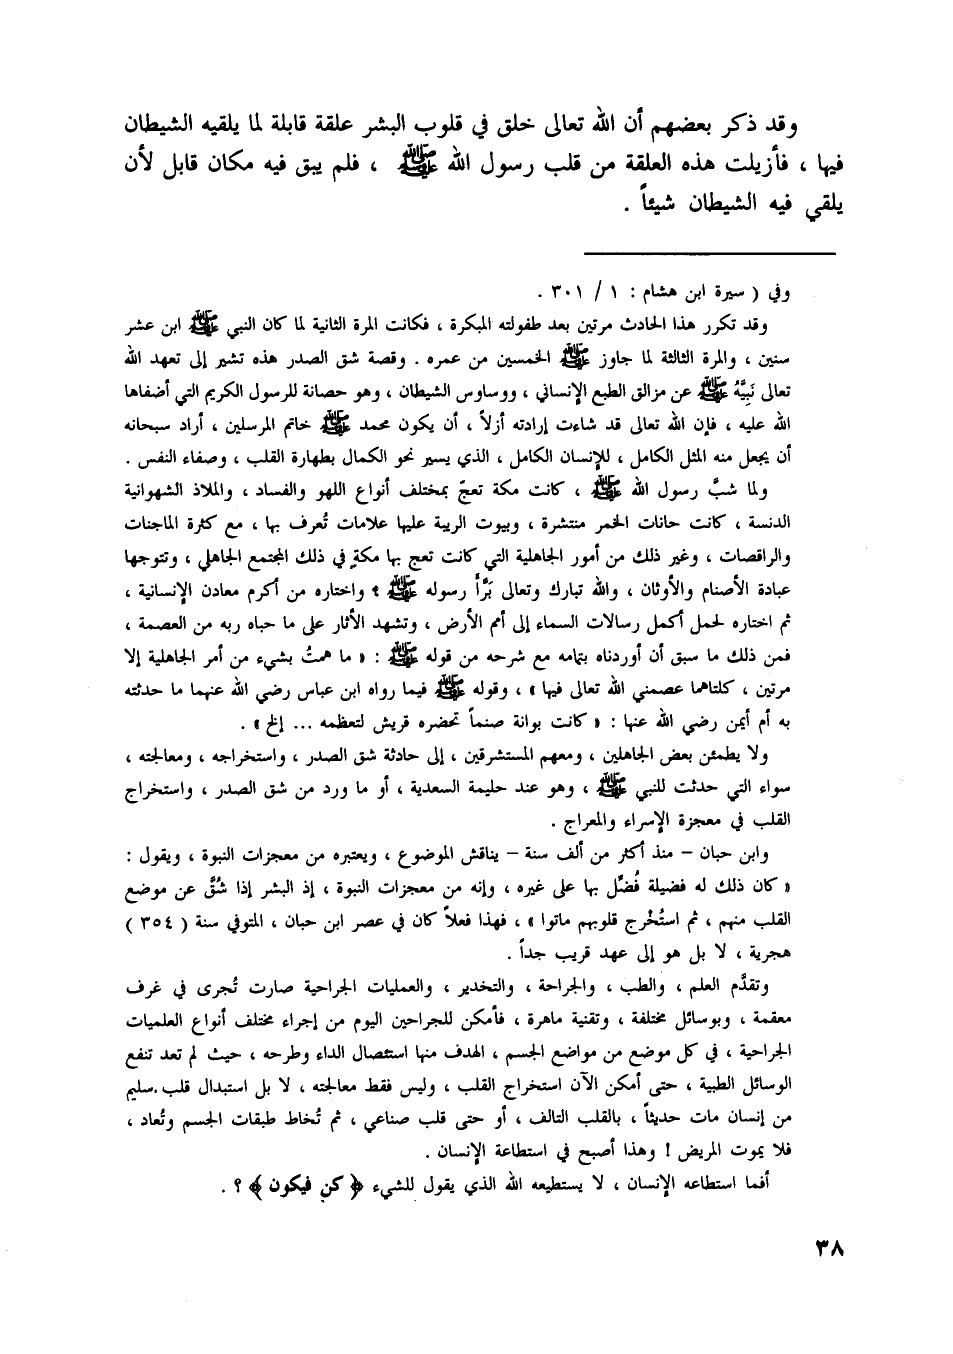 وقد ذكر بعضهم أن الله تعالى خلق في قلوب البشر علقة قابلة لما يلقيه الشيطان
فيها ، فأزيلت هذه العلقة من قلب رسول الله ﷺ ، فلم يبق فيه مكان قابل لأن
يلقي فيه الشيطان شيئاً .
وفي ( سيرة ابن هشام : ١ / ٣٠١ .
وقد تكرر هذا الحادث مرتين بعد طفولته المبكرة ، فكانت المرة الثانية لما كان النبي ﷺ ابن عشر
سنين ، والمرة الثالثة لما جاوز ﷺ الخمسين من عمره . وقصة شق الصدر هذه تشير إلى تعهد الله
تعالى نَبِيَّهُ ﷺ عن مزالق الطبع الإنساني ، ووساوس الشيطان ، وهو حصانة للرسول الكريم التي أضفاها
الله عليه ، فإن الله تعالى قد شاءت إرادته أزلاً ، أن يكون محمد ﷺ خاتم المرسلين ، أراد سبحانه
أن يجعل منه المثل الكامل ، للإنسان الكامل ، الذي يسير نحو الكمال بطهارة القلب ، وصفاء النفس .
ولما شبَّ رسول الله ﷺ ، كانت مكة تعجّ بمختلف أنواع اللهو والفساد ، والملاذ الشهوانية
الدنسة ، كانت حانات الخمر منتشرة ، وبيوت الريبة عليها علامات تُعرف بها ، مع كثرة الماجنات
والراقصات ، وغير ذلك من أمور الجاهلية التي كانت تعج بها مكةٍ في ذلك المجتمع الجاهلي ، وتتوجها
عبادة الأصنام والأوثان ، والله تبارك وتعالى بَرَّأَ رسوله ﷺ ؟ واختاره من أكرم معادن الإنسانية ،
ثم اختاره لحمل أكمل رسالات السماء إلى أمم الأرض ، وتشهد الأثار على ما حباه ربه من العصمة ،
فمن ذلك ما سبق أن أوردناه بتمامه مع شرحه من قوله ﷺ : « ما هممتُ بشيء من أمر الجاهلية إلا
مرتين ، كلتاهما عصمني الله تعالى فيها » ، وقوله ﷺ فيما رواه ابن عباس رضي الله عنهما ما حدثته
به أم أيمن رضي الله عنها : « كانت بوانة صنماً تحضره قريش لتعظمه ... إلخ » .
ولا يطمئن بعض الجاهلين ، ومعهم المستشرقين ، إلى حادثة شق الصدر ، واستخراجه ، ومعالجته ،
سواء التي حدثت للنبي ﷺ ، وهو عند حليمة السعدية ، أو ما ورد من شق الصدر ، واستخراج
القلب في معجزة الإسراء والمعراج .
وابن حبان – منذ أكثر من ألف سنة – يناقش الموضوع ، ويعتبره من معجزات النبوة ، ويقول :
« كان ذلك له فضيلة فُضِّل بها على غيره ، وإنه من معجزات النبوة ، إذ البشر إذا شُقَّ عن موضع
القلب منهم ، ثم استُخْرج قلوبهم ماتوا » ، فهذا فعلاً كان في عصر ابن حبان ، المتوفي سنة ( ٣٥٤ )
هجرية ، لا بل هو إلى عهد قريب جداً .
وتقدَّم العلم ، والطب ، والجراحة ، والتخدير ، والعمليات الجراحية صارت تُجرى في غرف
معقمة ، وبوسائل مختلفة ، وتقنية ماهرة ، فأمكن للجراحين اليوم من إجراء مختلف أنواع العلميات
الجراحية ، في كل موضع من مواضع الجسم ، الهدف منها استئصال الداء وطرحه ، حيث لم تعد تنفع
الوسائل الطبية ، حتى أمكن الآن استخراج القلب ، وليس فقط معالجته ، لا بل استبدال قلب سليم
من إنسان مات حديثاً ، بالقلب التالف ، أو حتى قلب صناعي ، ثم تُخاط طبقات الجسم وتُعاد ،
فلا يموت المريض ! وهذا أصبح في استطاعة الإنسان .
أفما استطاعه الإنسان ، لا يستطيعه الله الذي يقول للشيء ﴿ كن فيكون ﴾ ؟ .
٣٨